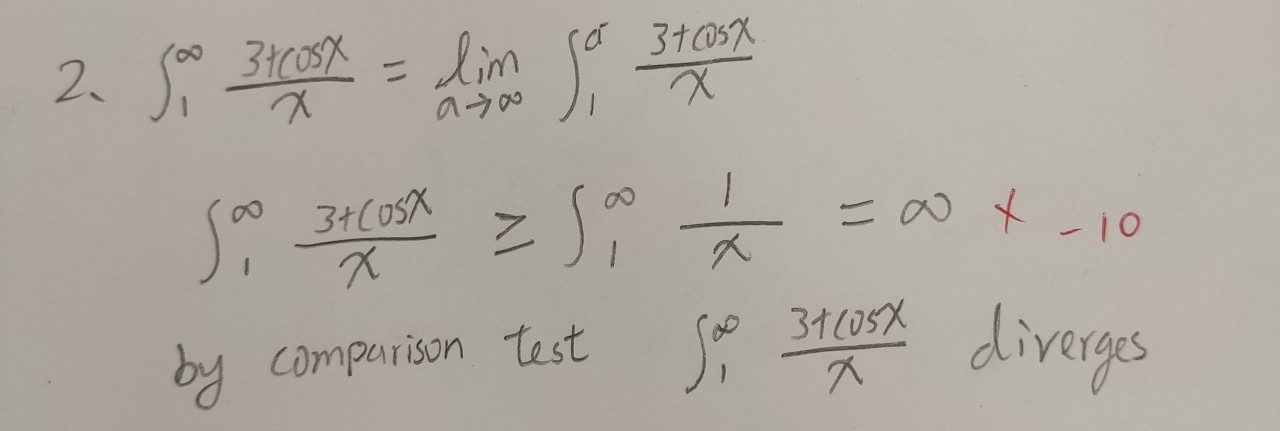 2、 ∫₁^∞ (3+cosx)/x = lim_{a→∞} ∫₁^a (3+cosx)/x
∫₁^∞ (3+cosx)/x ≥ ∫₁^∞ 1/x = ∞ × -10
by comparison test ∫₁^∞ (3+cosx)/x diverges